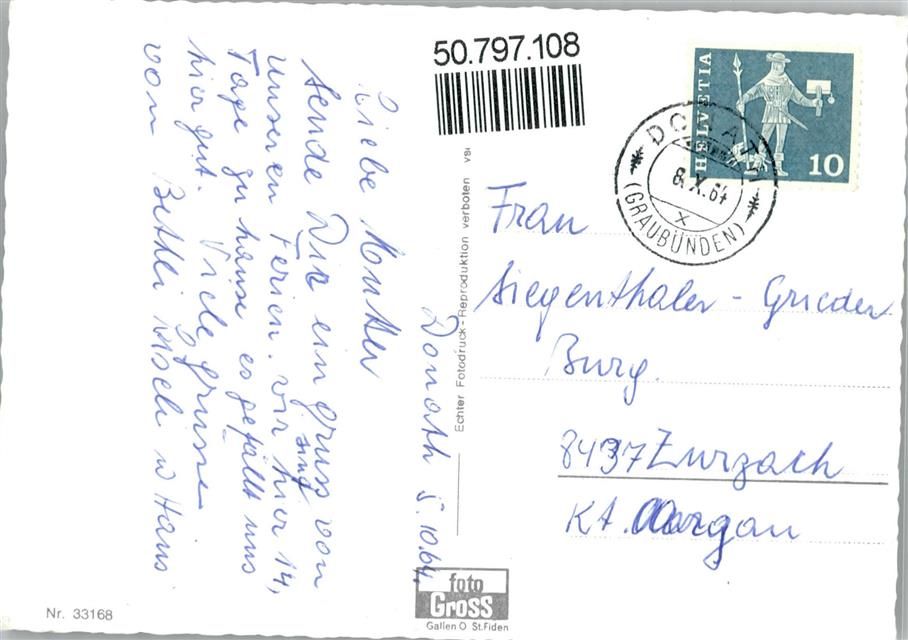 50.797.108
HELVETIA
10
DONATH
8.X.64
X
(GRAUBÜNDEN)
Donath 5.10.64
Liebe Mutter
sende Dir ein gruss von
unseren Ferien. wir sind hier 14,
Tage zu hause es gefällt uns
hier gut. Viele grüsse
von Bethli u Hans
Frau
Siegenthaler - Grieder
Burg.
8437 Zurzach
Kt. Aargau
Echter Fotodruck - Reproduktion verboten
foto
Gross
Gallen O St.Fiden
Nr. 33168